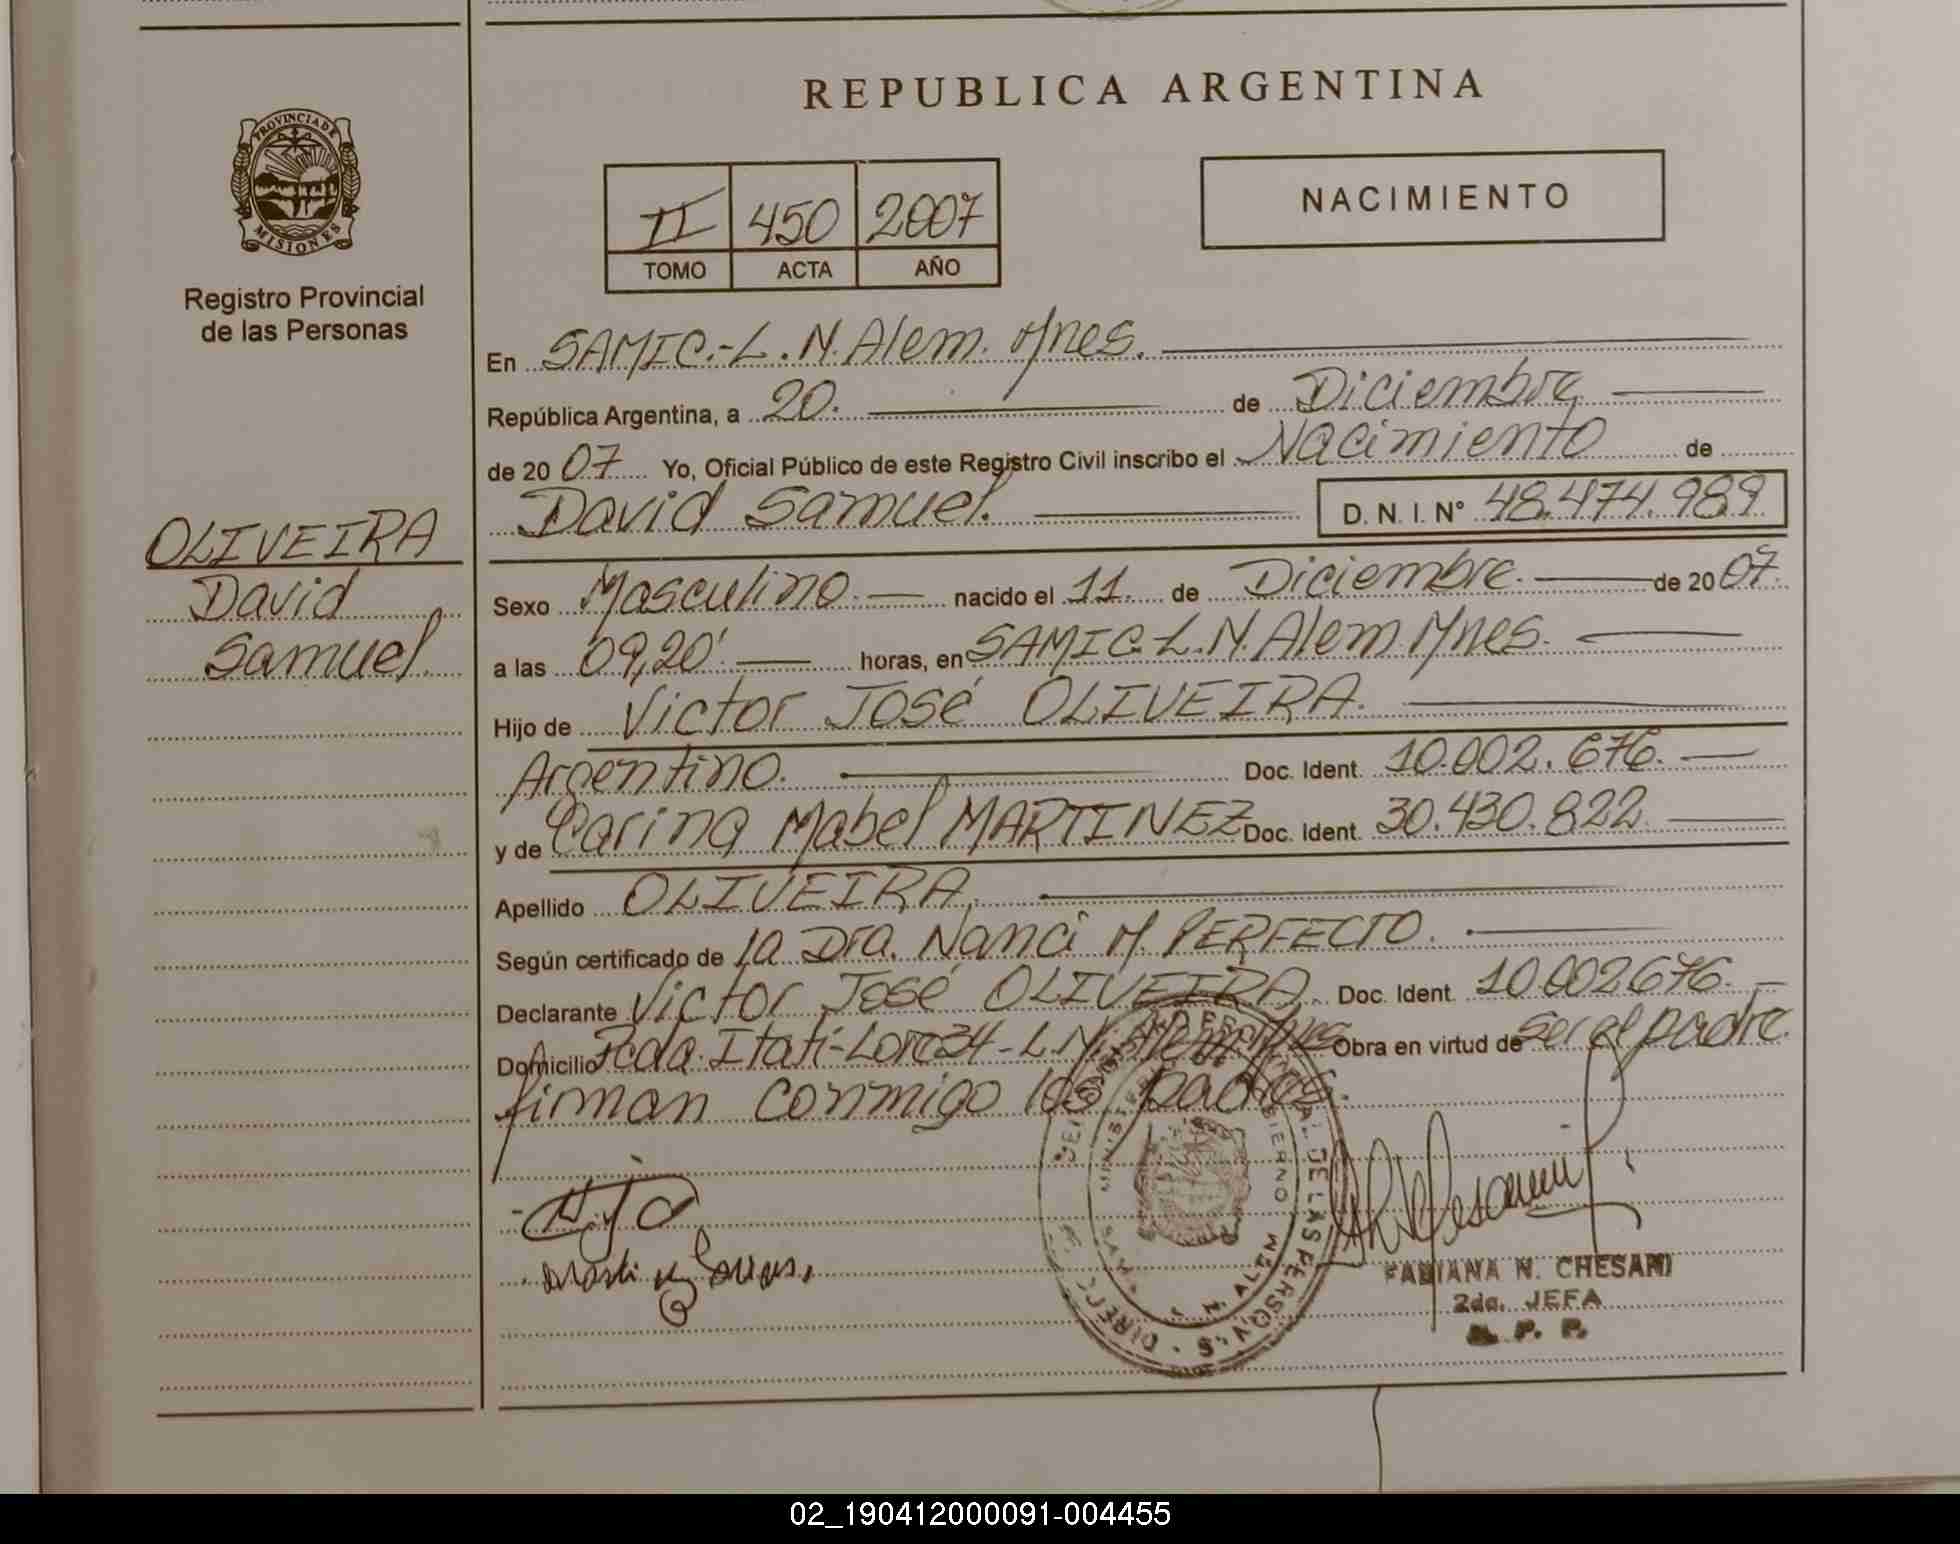 PROVINCIA DE
MISIONES
Registro Provincial
de las Personas
OLIVEIRA
David
Samuel.
REPUBLICA ARGENTINA
II 450 2007
TOMO ACTA AÑO
NACIMIENTO
En SAMIC.-L.N.Alem. Mnes.
República Argentina, a 20. de Diciembre
de 20 07 Yo, Oficial Público de este Registro Civil inscribo el Nacimiento de
David Samuel. D. N. I. N° 48.474.989
Sexo Masculino. nacido el 11. de Diciembre. de 20 07.
a las 09,20' horas, en SAMIC.-L.N.Alem Mnes.
Hijo de Victor José OLIVEIRA.
Argentino. Doc. Ident. 10.002.676.
y de Carina Mabel MARTINEZ Doc. Ident. 30.430.822
Apellido OLIVEIRA.
Según certificado de la Dra. Nanci M. PERFECTO.
Declarante Victor José OLIVEIRA. Doc. Ident. 10.002.676.
Domicilio Pcda. Itati-Lote 34-L.N. Alem Mnes Obra en virtud de ser el padre.
firman conmigo los padres.
L. N. ALEM
FABIANA N. CHESANI
2da. JEFA
R. P. P.
02_190412000091-004455